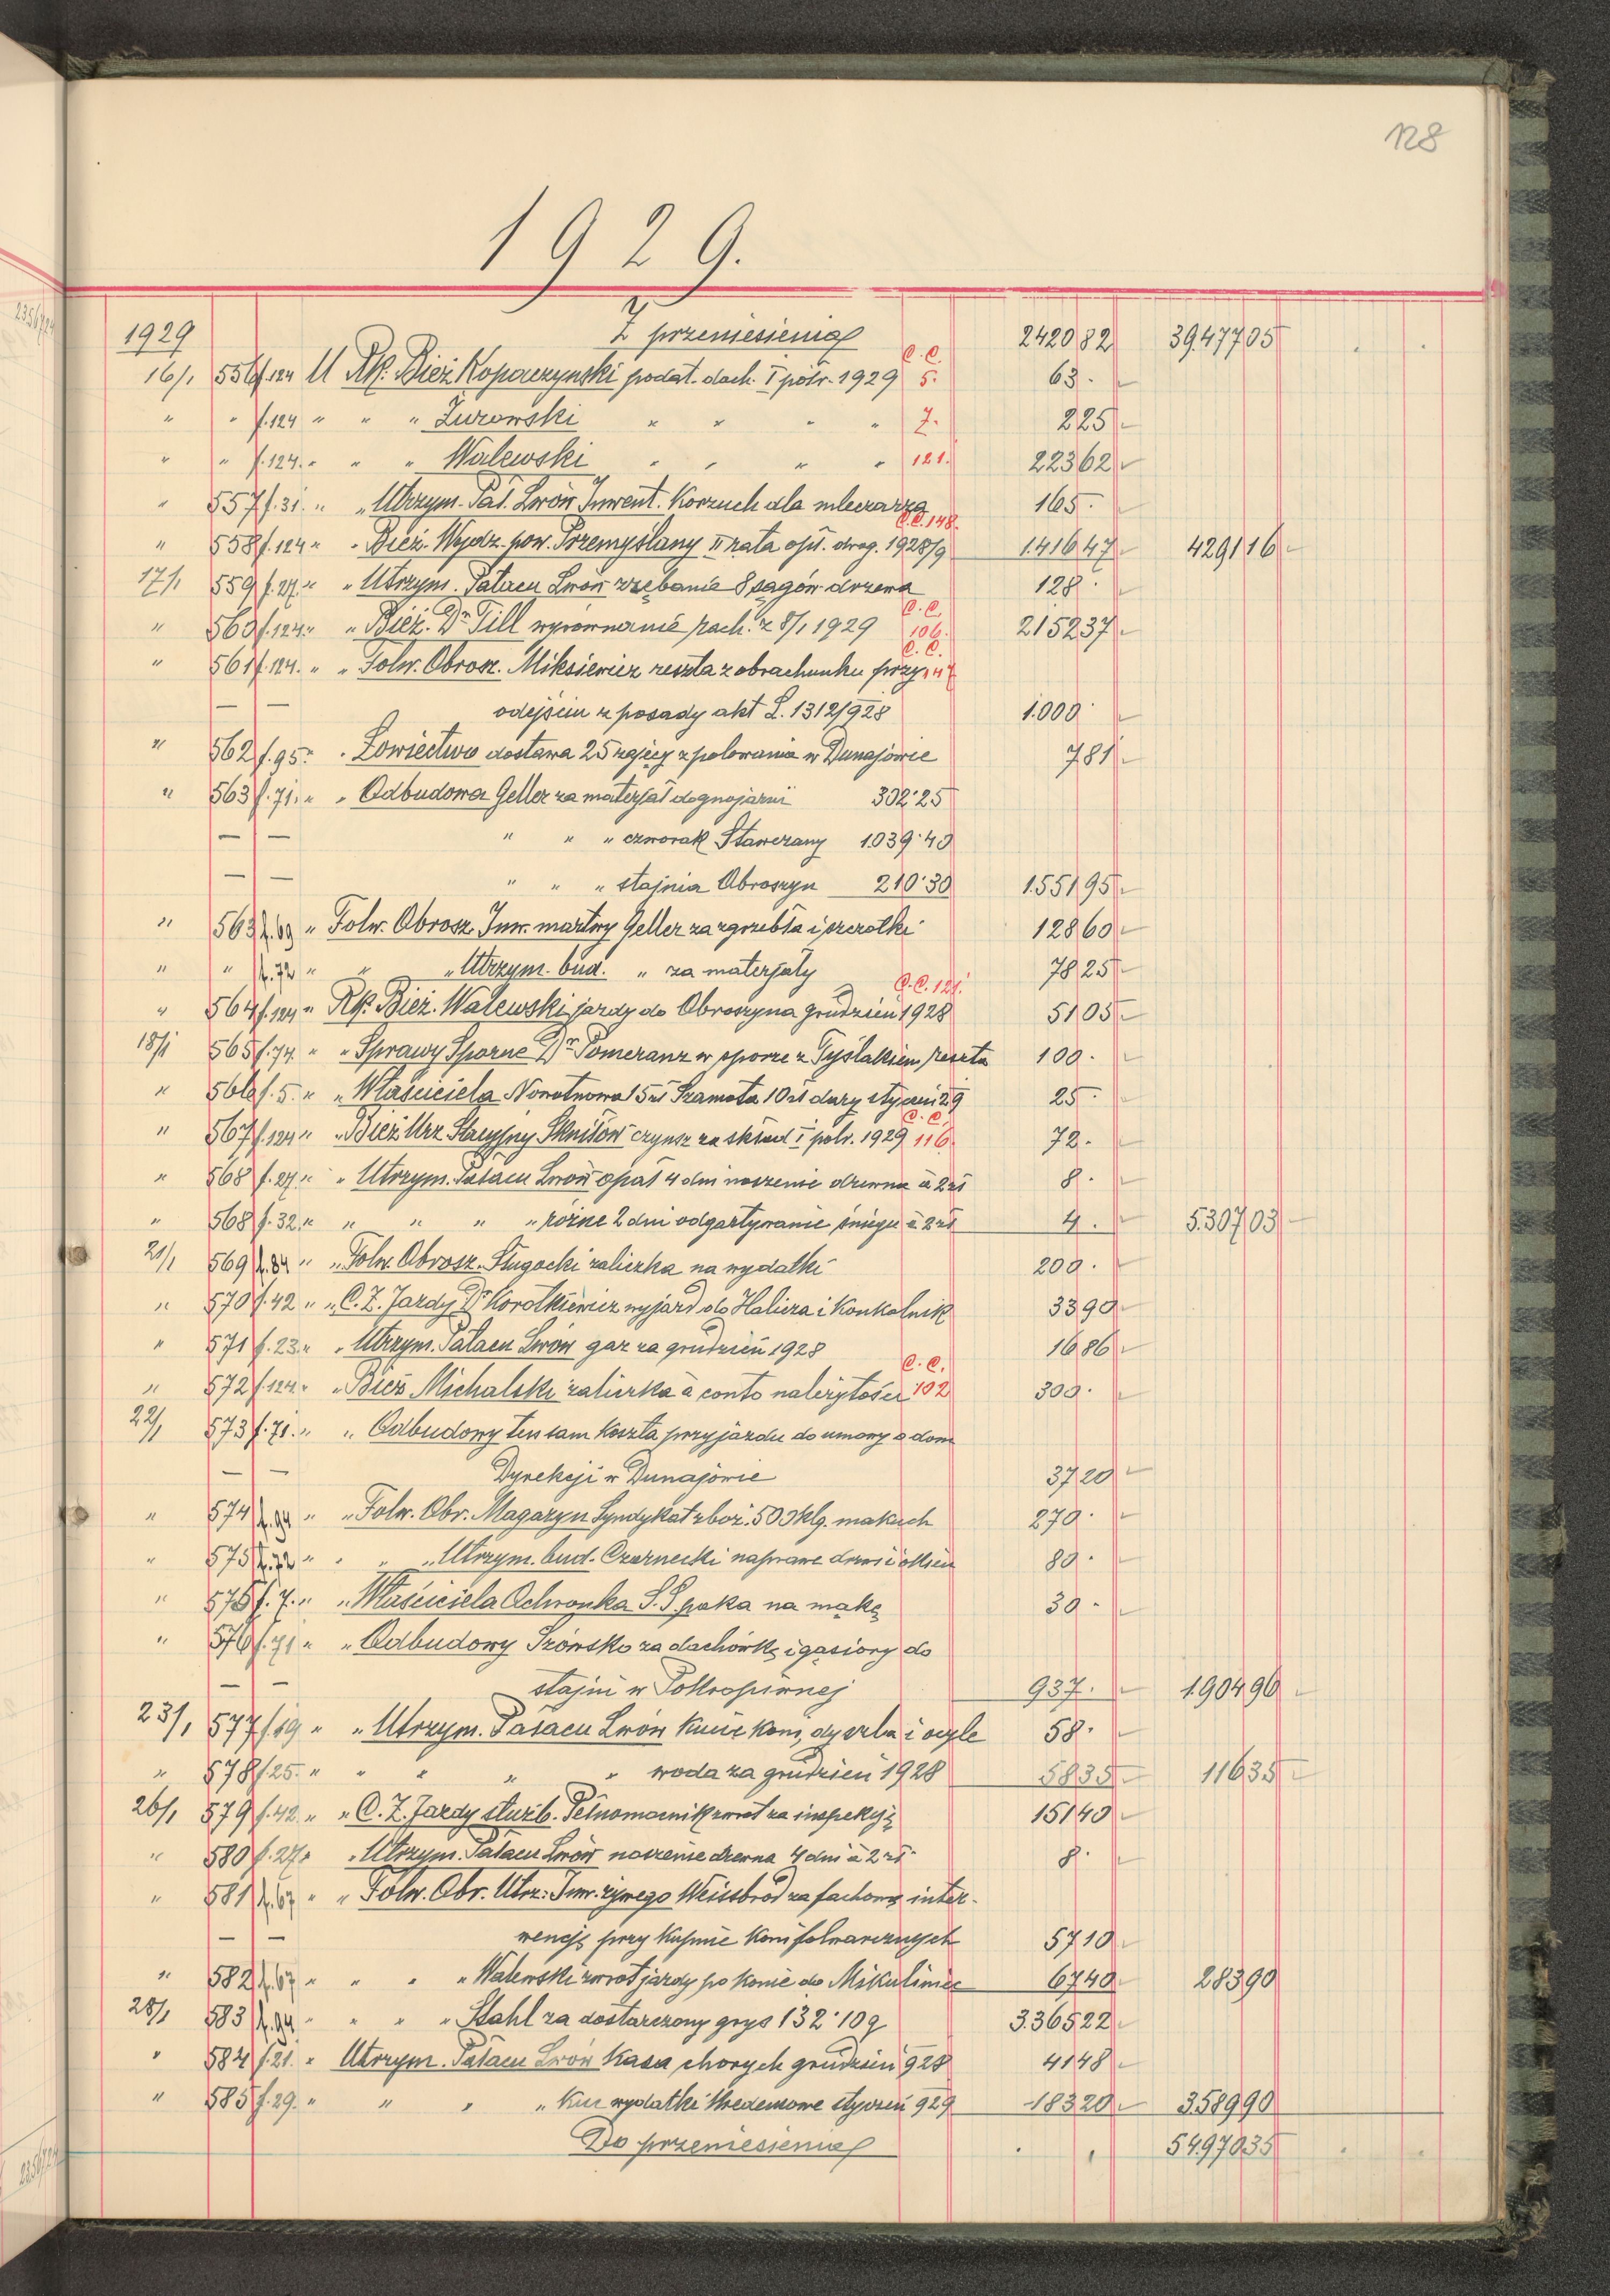 128
1929.
1929 Z przeniesienia 2420 82 39.477 05
16/1 556 f.124 U Rk. Bież Kopaczynski podat. doch. I półr. 1929 C.C. 5. 63.
" " f.124 " " " Żurowski " " " " 7. 225
" " f.124. " " " Walewski " " " " 121. 223 62
" 557 f.31. " " Utrzym. Pał. Lwów Inwent. Korzuch dla mleczarza 165.
" 558 f.124 " " Bież. Wydz. pow. Przemyślany II rata opł. drog. 1928/9 C.C. 148. 1.416 47 4291 16
17/1 559 f.27. " " Utrzym. Pałacu Lwów zrębanie 8 sągów drzewa 128.
" 560 f.124. " " Bież. Dr Till wyrównanie rach. z 8/1 1929 C.C. 106. 2152 37
" 561 f.124. " " Folw. Obrosz. Miksiewicz reszta z obrachunku przy C.C.
— — odejściu z posady akt L. 1312/928 1.000
" 562 f.95. " Łowiectwo dostawa 25 zajęcy z polowania w Dunajowie 781
" 563 f.71. " " Odbudowa Geller za materjał do gnojarni 302.25
— — " " " czworak Stawczany 1.039.40
— — " " " stajnia Obroszyn 210.30 1.551 95
" 563 f.69 " Folw. Obrosz. Inw. martwy Geller za zgrzebła i szczotki 128 60
" " f.72 " " " Utrzym. bud. " za materjały 78 25
" 564 f.124 " Rk. Bież. Walewski jazdy do Obroszyna grudzień 1928 C.C. 121. 51 05
18/1 565 f.74. " " Sprawy Sporne Dr Pomeranz w sporze z Tyślakiem reszta 100.
" 566 f.5. " " Właściciela Nowotnowa 15 zł Szamota 10 zł dary styczeń 29 25.
" 567 f.124 " " Bież Urz Stacyjny Skniłów czynsz za skład I półr. 1929 C.C. 116. 72.
" 568 f.27. " " Utrzym. Pałacu Lwów opał 4 dni noszenie drzewa à 2 zł 8.
" 568 f.32. " " " " " różne 2 dni odgartywanie śniegu à 2 zł 4. 5.307 03
21/1 569 f.84 " " Folw. Obrosz. Sługocki zaliczka na wydatki 200.
" 570 f.42 " " C.Z. Jazdy Dr Korotkiewicz wyjazd do Halicza i Konkolnik 33 90
" 571 f.23. " " Utrzym. Pałacu Lwów gaz za grudzień 1928 16 86
" 572 f.124. " " Bież Michalski zaliczka à conto należytości C.C. 102 300.
22/1 573 f.71. " " Odbudowy ten sam koszta przyjazdu do umowy o dom
— — Dyrekcji w Dunajowie 37 20
" 574 f.94 " " Folw. Obr. Magazyn Syndykat zboż. 500 klg. makuch 270.
" 575 f.72 " " " " Utrzym. bud. Czarnecki naprawe drzwi i okien 80.
" 575 f.7. " " Właściciela Ochronka S.S. paka na mąkę 30.
" 576 f.71 " " Odbudowy za dachówkę i gąsiory do
— — stajni w Pokropiwnej 937. 1.904 96
23/1 577 f.19 " " Utrzym. Pałacu Lwów kucie koni, dyszla i ocyle 58.
" 578 f.25. " " " " " woda za grudzień 1928 58 35 116 35
26/1 579 f.42. " " C.Z. Jazdy służb. Pełnomocnik zwrot za inspekcję 151 40
" 580 f.27. " " Utrzym. Pałacu Lwów noszenie drzewa 4 dni à 2 zł 8.
" 581 f.67 " " Folw. Obr. Utrz. Inw. żywego Weissbrod za fachową inter-
— — wencję przy kupnie koni folwarcznych 57 10
" 582 f.67 " " " " Walewski zwrot jazdy po konie do Mikuliniec 67 40 283 90
28/1 583 f.94 " " " " Stahl za dostarczony grys 132.10 q 3.365 22
" 584 f.21. " Utrzym. Pałacu Lwów Kasa chorych grudzień 928 41 48
" 585 f.29. " " " " Kuc wydatki kredensowe styczeń 929 183 20 3.589 90
Do przeniesienia 54.970 35